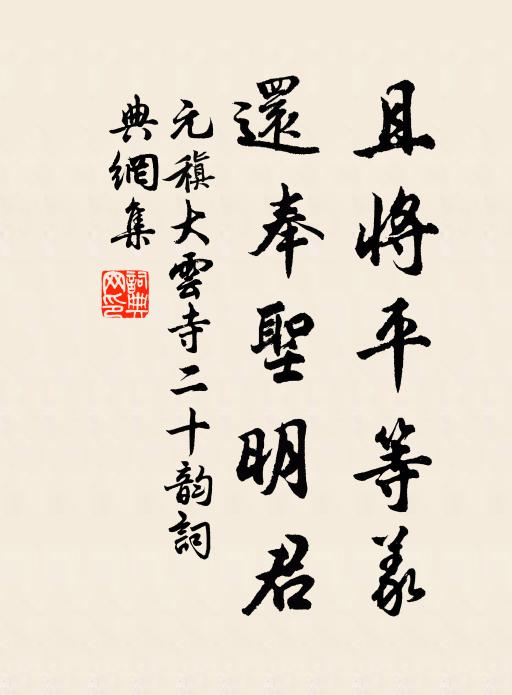 且將平等義
還奉聖明君
元稹大雲寺二十韵詞
典網集
詞典
网印